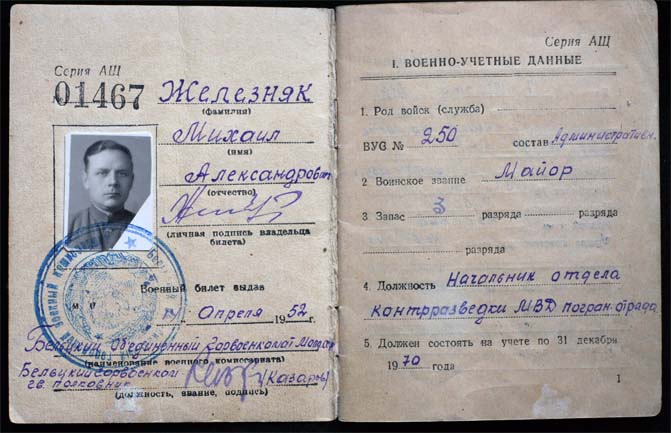 Серия АЩ
01467 Железняк
(фамилия)
Михаил
(имя)
Александрович
(отчество)
(личная подпись владельца
билета)
Военный билет выдан
Апреля 1952 г.
Бельцкий Объединенный Горвоенкомат
(наименование военного комиссариата)
Бельцкий горвоенком
гв. полковник (Казаров)
(должность, звание, подпись)
Серия АЩ
I. ВОЕННО-УЧЕТНЫЕ ДАННЫЕ
1. Род войск (служба)
ВУС № 250 состав Административн.
2 Воинское звание Майор
3 Запас 3 разряда разряда
разряда
4. Должность Начальник отдела
контрразведки МВД погран. отряда
5. Должен состоять на учете по 31 декабря
1970 года
1